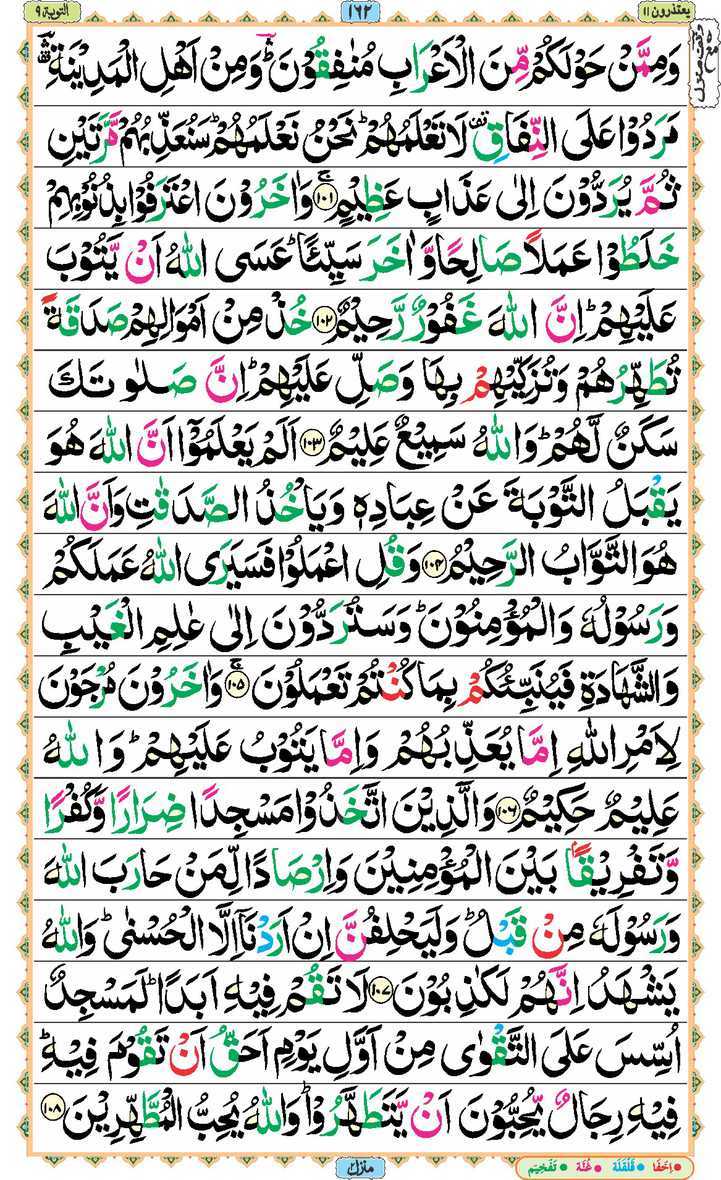 يعتذرون ١١
١٦٢
التوبة ٩
وَمِمَّنْ حَوْلَكُمْ مِّنَ الْاَعْرَابِ مُنٰفِقُوْنَ ۛؕ وَمِنْ اَهْلِ الْمَدِيْنَةِ ۛؔ
مَرَدُوْا عَلَى النِّفَاقِ ۫ لَا تَعْلَمُهُمْ ؕ نَحْنُ نَعْلَمُهُمْ ؕ سَنُعَذِّبُهُمْ مَّرَّتَيْنِ
ثُمَّ يُرَدُّوْنَ اِلٰى عَذَابٍ عَظِيْمٍ ۚ‏﴿۱۰۱﴾ وَاٰخَرُوْنَ اعْتَرَفُوْا بِذُنُوْبِهِمْ
خَلَطُوْا عَمَلًا صَالِحًا وَّاٰخَرَ سَيِّئًا ؕ عَسَى اللّٰهُ اَنْ يَّتُوْبَ
عَلَيْهِمْ ؕ اِنَّ اللّٰهَ غَفُوْرٌ رَّحِيْمٌ ﴿۱۰۲﴾ خُذْ مِنْ اَمْوَالِهِمْ صَدَقَةً
تُطَهِّرُهُمْ وَتُزَكِّيْهِمْ بِهَا وَصَلِّ عَلَيْهِمْ ؕ اِنَّ صَلٰوتَكَ
سَكَنٌ لَّهُمْ ؕ وَاللّٰهُ سَمِيْعٌ عَلِيْمٌ ﴿۱۰۳﴾ اَلَمْ يَعْلَمُوْۤا اَنَّ اللّٰهَ هُوَ
يَقْبَلُ التَّوْبَةَ عَنْ عِبَادِهٖ وَيَاْخُذُ الصَّدَقٰتِ وَاَنَّ اللّٰهَ
هُوَ التَّوَّابُ الرَّحِيْمُ ﴿۱۰۴﴾ وَقُلِ اعْمَلُوْا فَسَيَرَى اللّٰهُ عَمَلَكُمْ
وَرَسُوْلُهٗ وَالْمُؤْمِنُوْنَ ؕ وَسَتُرَدُّوْنَ اِلٰى عٰلِمِ الْغَيْبِ
وَالشَّهَادَةِ فَيُنَبِّئُكُمْ بِمَا كُنْتُمْ تَعْمَلُوْنَ ۚ ﴿۱۰۵﴾ وَاٰخَرُوْنَ مُرْجَوْنَ
لِاَمْرِ اللّٰهِ اِمَّا يُعَذِّبُهُمْ وَاِمَّا يَتُوْبُ عَلَيْهِمْ ؕ وَاللّٰهُ
عَلِيْمٌ حَكِيْمٌ ﴿۱۰۶﴾ وَالَّذِيْنَ اتَّخَذُوْا مَسْجِدًا ضِرَارًا وَّكُفْرًا
وَّتَفْرِيْقًۢا بَيْنَ الْمُؤْمِنِيْنَ وَاِرْصَادًا لِّمَنْ حَارَبَ اللّٰهَ
وَرَسُوْلَهٗ مِنْ قَبْلُ ؕ وَلَيَحْلِفُنَّ اِنْ اَرَدْنَاۤ اِلَّا الْحُسْنٰى ؕ وَاللّٰهُ
يَشْهَدُ اِنَّهُمْ لَكٰذِبُوْنَ ﴿۱۰۷﴾ لَا تَقُمْ فِيْهِ اَبَدًا ؕ لَمَسْجِدٌ
اُسِّسَ عَلَى التَّقْوٰى مِنْ اَوَّلِ يَوْمٍ اَحَقُّ اَنْ تَقُوْمَ فِيْهِ ؕ
فِيْهِ رِجَالٌ يُّحِبُّوْنَ اَنْ يَّتَطَهَّرُوْا ؕ وَاللّٰهُ يُحِبُّ الْمُطَّهِّرِيْنَ ﴿۱۰۸﴾
منزل ٢
اِخفَا قَلْقَلَة غُنَّة تَفْخِيْم